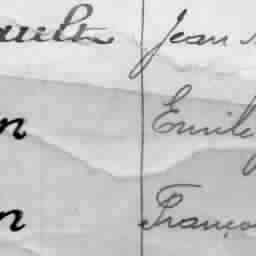 ault Jean
n Emile
n Franço